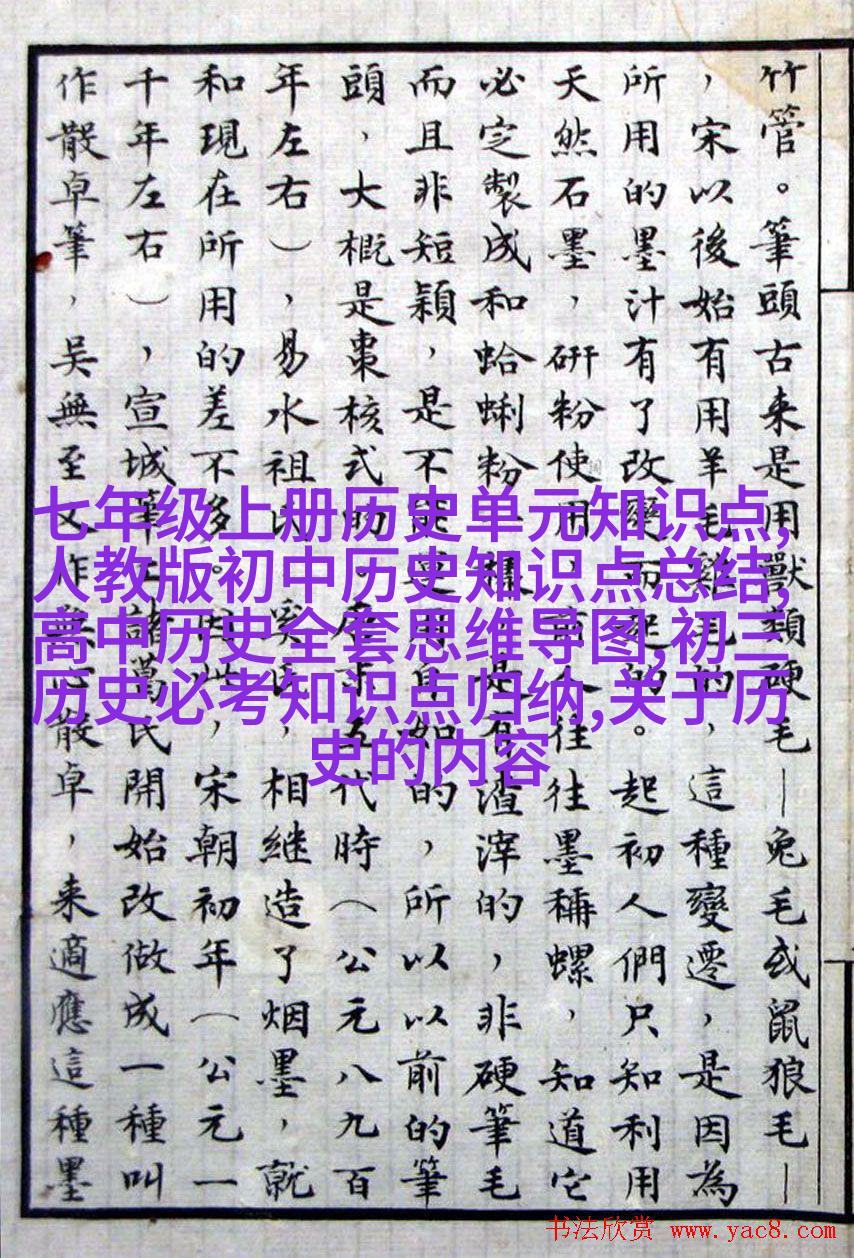 竹管。筆頭古来是用獸類硬毛—兔毛或鼠狼毛—
，宋以後始有用羊毛雞毛的，這種變遷，是因為
所用的墨汁有了改變而起的。起初人們只知利用
天然石墨，研粉使用，前人往往墨稱螺，知道它
必定製成和蛤蜊粉一樣，是有渣滓的，非硬筆毛
而且非短穎，是不能運用自如的，所以以前的筆
頭，大概是棗核式的。唐末五代時（公元八九百
年左右），易水祖氏、奚氏，相継造了烟墨，就
和現在所用的差不多。因此，宋朝初年（公元一
千年左右），宣城筆工諸葛氏開始改做成一種叫
作散卓筆，吳無至又作無心散卓，来適應這種墨
七年级上册历史单元知识点,
人教版初中历史知识点总结,
高中历史全套思维导图,初三
历史必考知识点归纳,关于历
史的内容
书法欣赏 www.yac8.com